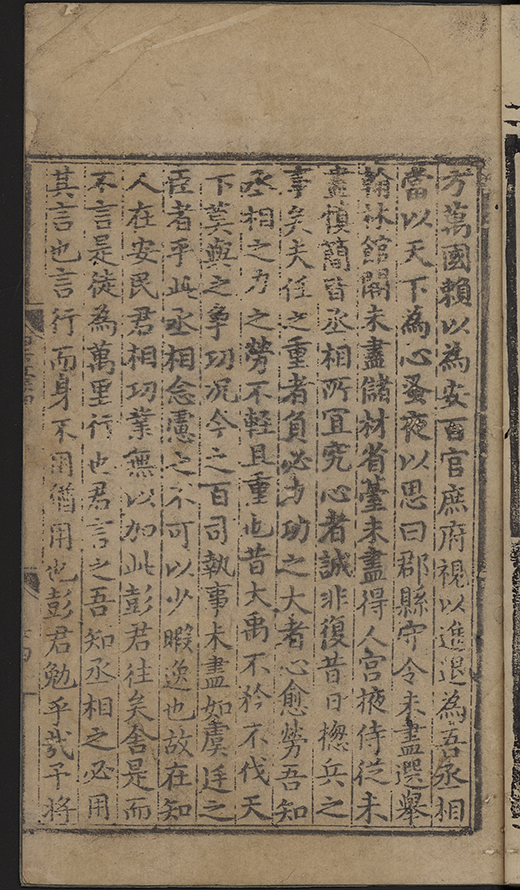 方萬國賴以為安百官庶府視以進退為吾丞相
當以天下為心蚤夜以思曰郡縣守令未盡選舉
翰林館閣未盡儲材省臺未盡得人宫掖侍從未
盡慎蕳皆丞相所宜究心者誠非復昔日揔兵之
事矣夫任之重者負必力功之大者心愈勞吾知
丞相之力之勞不輕且重也昔大禹不矜不伐天
下莫與之爭功况今之百司執事未盡如虞廷之
臣者乎此丞相念慮之不可以少暇逸也故在知
人在安民君相功業無以加此彭君往矣舍是而
不言是徒為萬里行也君言之吾知丞相之必用
其言也言行而身不用猶用也彭君勉乎哉予將